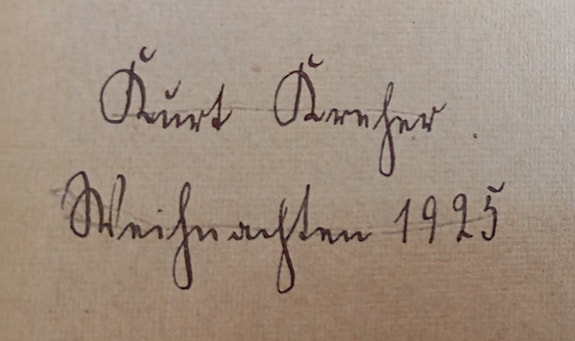 Kurt Kreher.
Weihnachten 1925